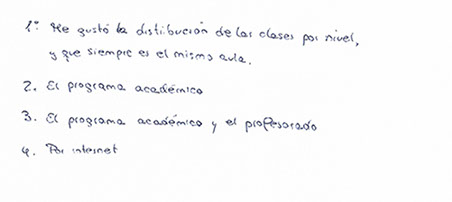 1º: Me gustó la distribución de las clases por nivel,
y que siempre es el mismo aula.
2. El programa académico
3. El programa académico y el profesorado
4. Por internet